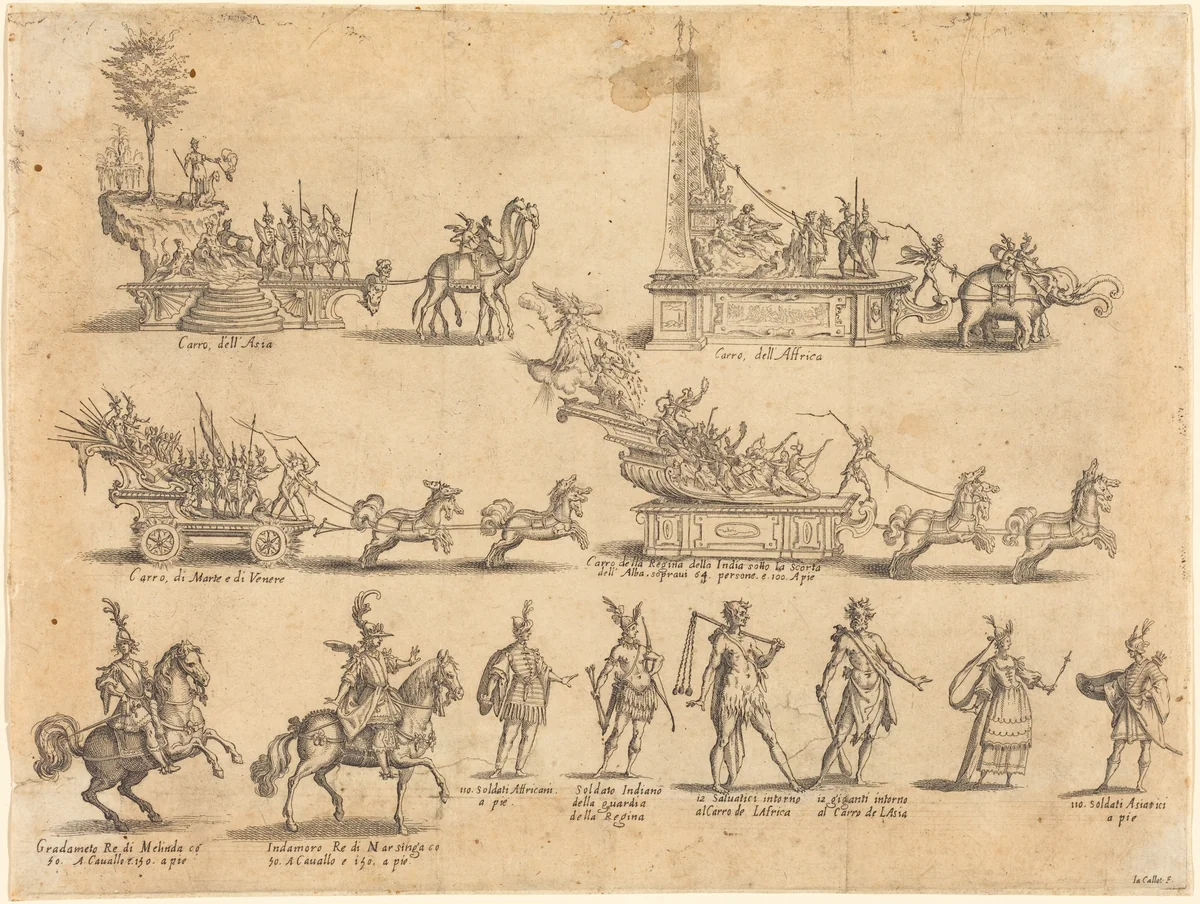 Carro, dell'Asia
Carro, dell'Affrica
Carro, di Marte e di Venere
Carro della Regina della India sotto la Scorta
dell'Alba. sopraui 64. persone. e. 100. A pie
Gradameto Re di Melinda cō
50. A Cauallo e. 150. a pie
Indamoro Re di Narsinga co
50. A Cauallo e 150. a pie
110. Soldati Affricani.
a pie.
Soldato Indiano
della guardia
della Regina
12 Saluatici intorno
al Carro de LAfrica
12 giganti intorno
al Carro de LAsia
110. Soldati Asiatici
a pie
Ia Callot. F.